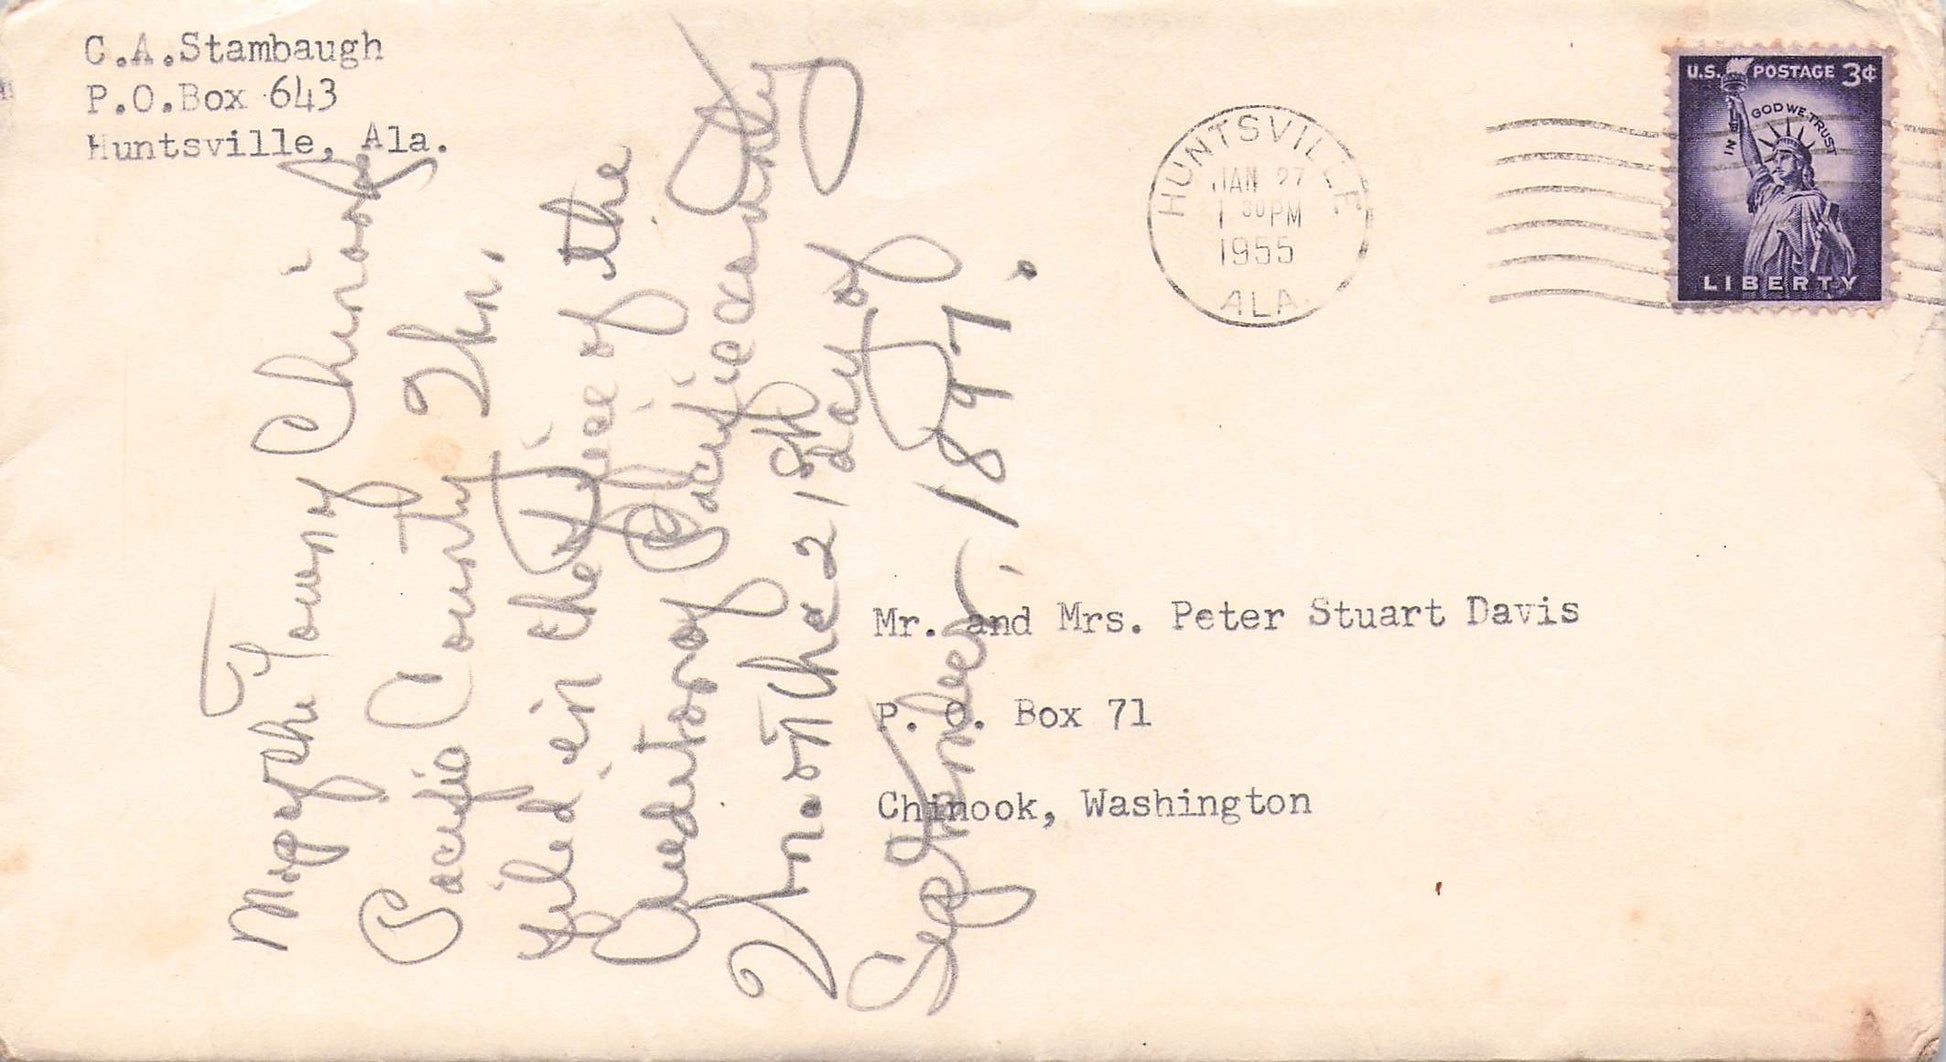 C.A.Stambaugh
P.O.Box 643
Huntsville, Ala.
HUNTSVILLE
JAN 27
1 30 PM
1955
ALA.
U.S. POSTAGE 3¢
IN GOD WE TRUST
LIBERTY
Mr. and Mrs. Peter Stuart Davis
P. O. Box 71
Chinook, Washington
Map of the Town of Chinook
Pacific County Wn.
Filed in the office of the
Auditor of Pacific County
Wn. on the 21st day of
September, 1897.